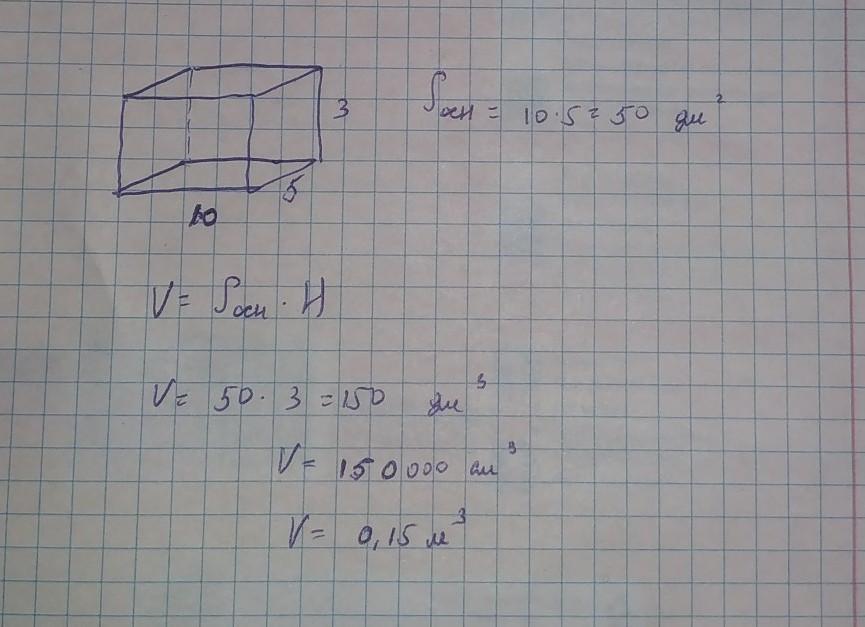 3
Sосн = 10·5 = 50 дм²
5
10
V = Sосн · H
V = 50 · 3 = 150 дм³
V = 150000 см³
V = 0,15 м³